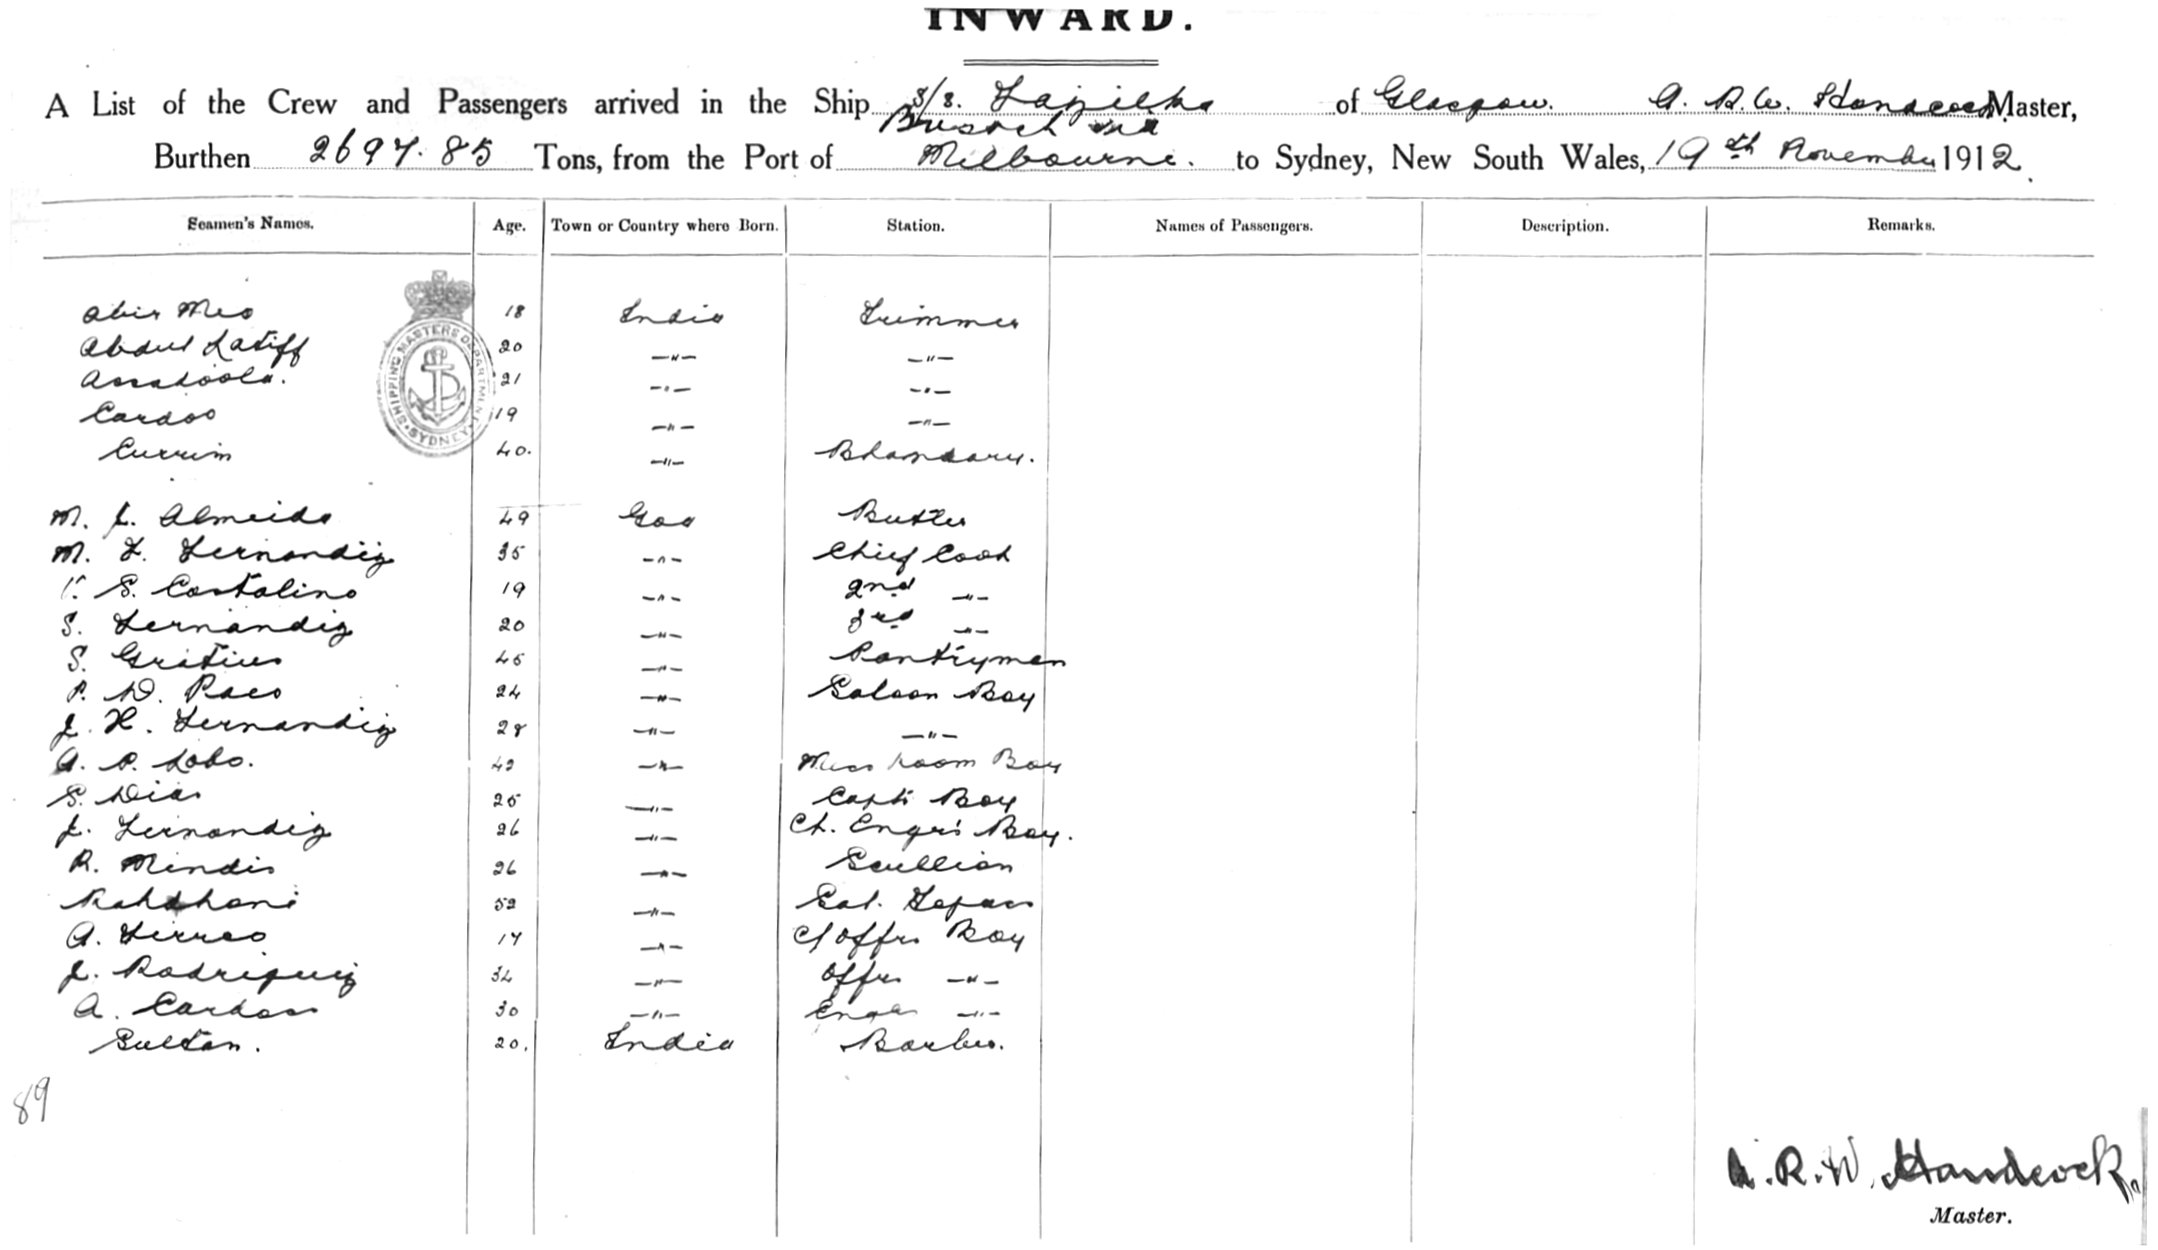 INWARD.
A List of the Crew and Passengers arrived in the Ship S/S. Fazilka of Glasgow. A. R. W. Handcock Master,
Busreh via
Burthen 2697.85 Tons, from the Port of Melbourne. to Sydney, New South Wales, 19th November 1912.
Seamen's Names. Age. Town or Country where Born. Station. Names of Passengers. Description. Remarks.
SHIPPING MASTERS DEPARTMENT SYDNEY
Abir Meo 18 India Trimmer
Abdul Latiff 20 —"— —"—
Assadoola. 21 —"— —"—
Cardoo 19 —"— —"—
Currim 40. —"— Bhandary.
M. J. Almeida 49 Goa Butler
M. F. Fernandiz 35 —"— Chief Cook
S. Costalino 19 —"— 2nd —"—
S. Fernandiz 20 —"— 3rd —"—
S. Gratius 45 —"— Pantryman
P. D. Paes 24 —"— Saloon Boy
J. X. Fernandiz 28 —"— —"—
A. P. Lobo. 42 —"— Mess Room Boy
S. Dias 25 —"— Capt's Boy
J. Fernandiz 26 —"— Ch. Engr's Boy.
R. Mindis 26 —"— Scullion
52 —"— Sal. Topass
A. Firrao 17 —"— C/Offrs Boy
J. Rodriguiz 34 —"— Offrs —"—
A. Cardoss 30 —"— Engrs —"—
Sultan. 20. India Barber.
89
A. R. W. Handcock
Master.